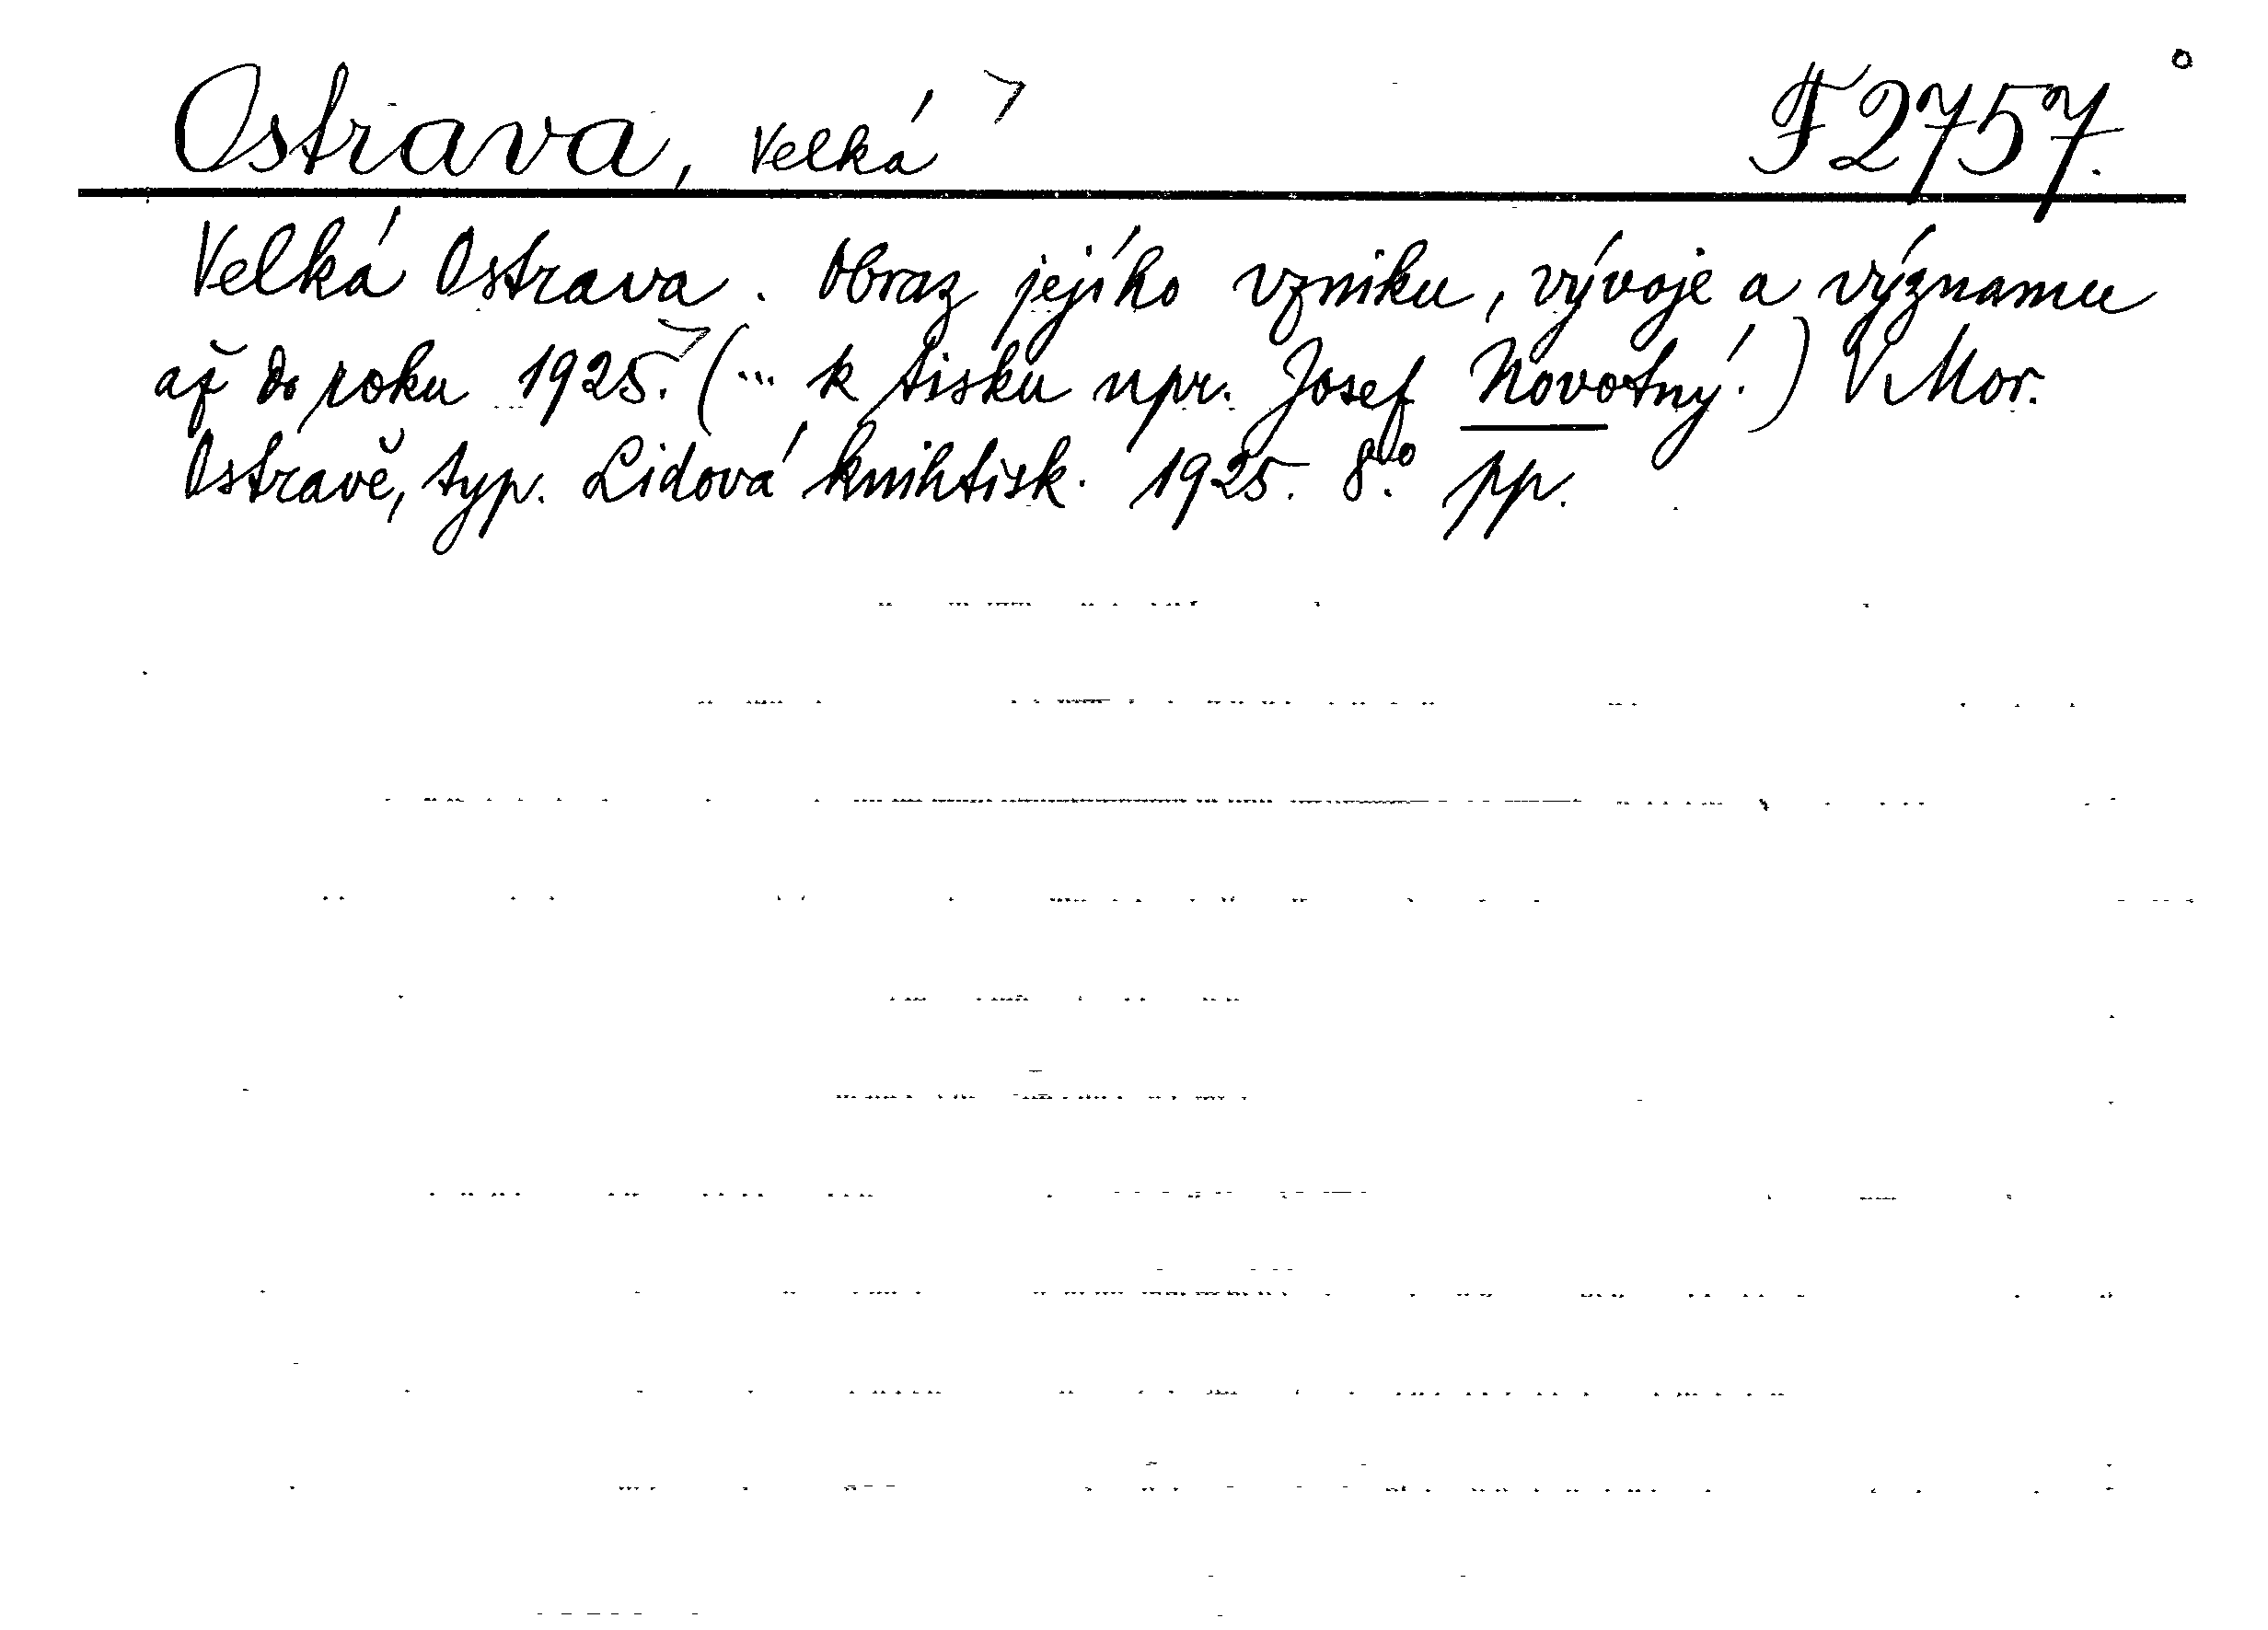 Ostrava, Velká F 2757.
Velká Ostrava. Obraz jejího vzniku, vývoje a významu
až do roku 1925. (... k tisku upr. Josef Novotný.) V Mor.
Ostravě, typ. Lidová knihtisk. 1925. 8.vo pp.